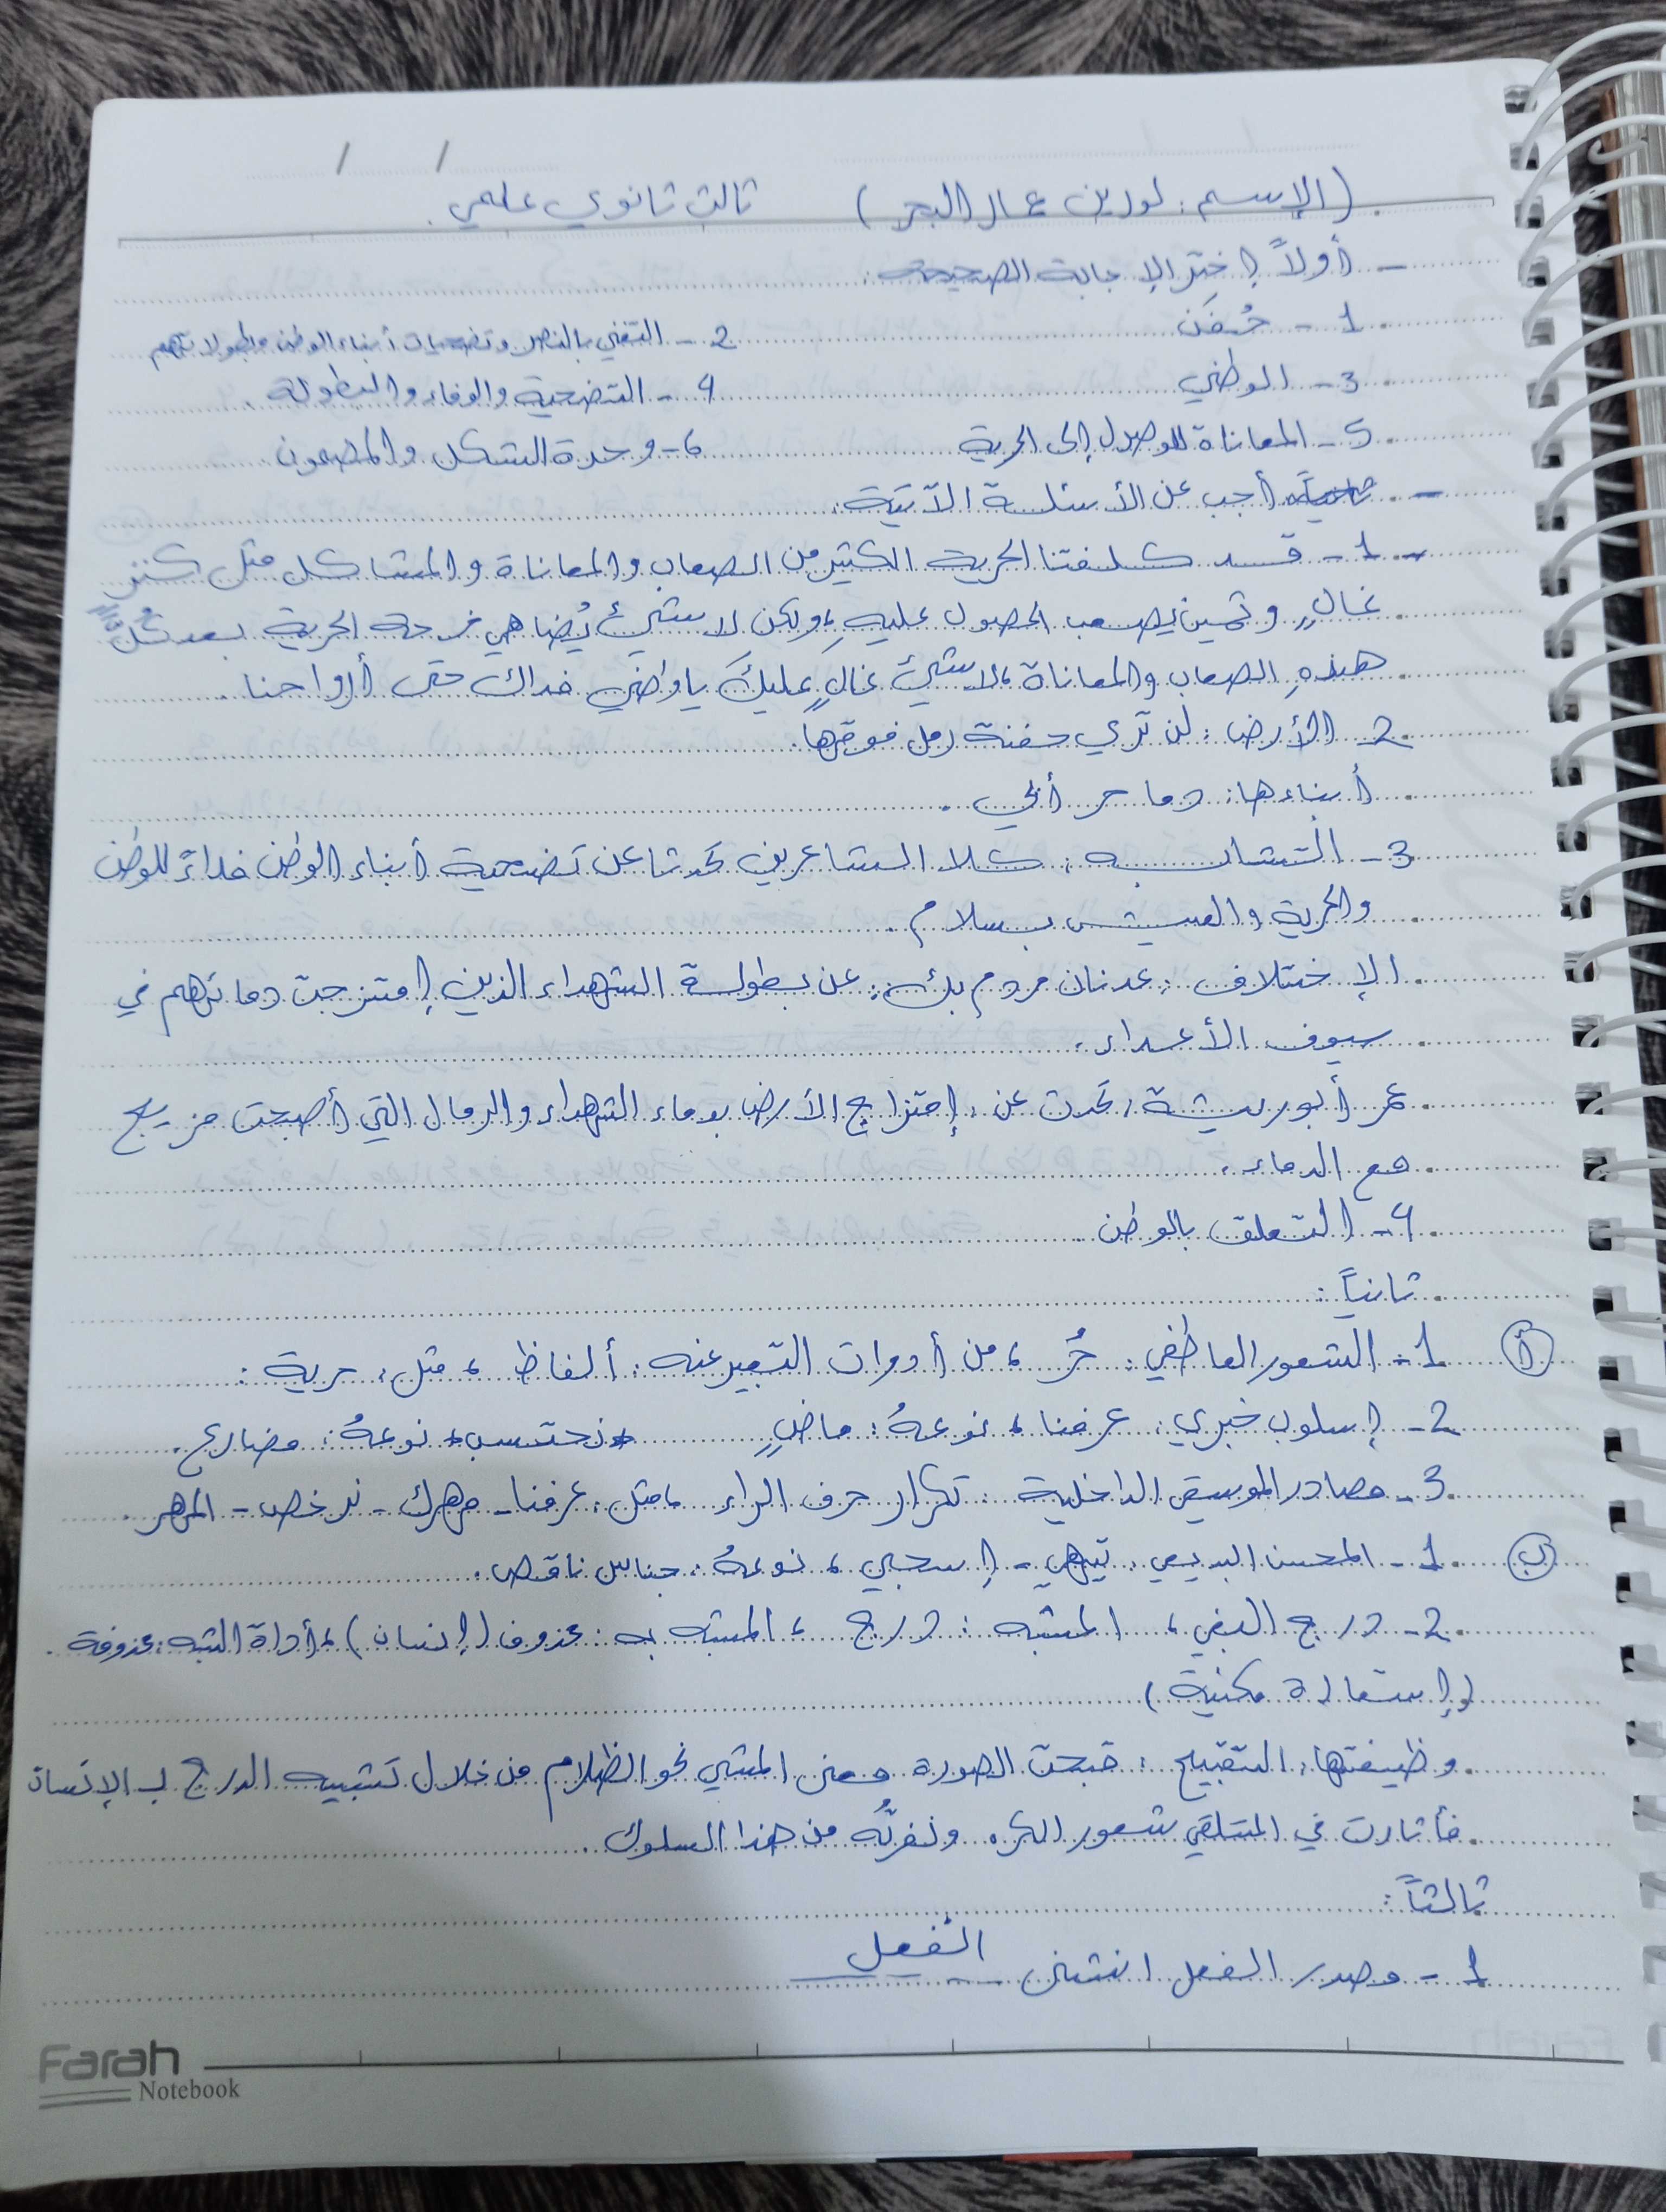 (الإسم: لورين عمار البحر) ثالث ثانوي علمي.
- أولاً إختر الإجابة الصحيحة:
1- حُفَن 2- التغني بالنصر وتضحيات أبناء الوطن وبطولاتهم
3- الوطني 4- التضحية والوفاء والبطولة.
5- المعاناة للوصول إلى الحرية 6- وحدة الشكل والمضمون
- ثانياً أجب عن الأسئلة الآتية:
- 1- قد كلفتنا الحرية الكثير من الصعاب والمعاناة والمشاكل مثل كنز
غالٍ وثمين يصعب الحصول عليه، ولكن لا شيئ يُضاهي فرحة الحرية بعد كُلِّ
هذهِ الصعاب والمعاناة، لا شيئ غالٍ عليكَ يا وطني فداك حتى أرواحنا.
2- الأرض: لن تري حفنة رمل فوقها.
أبناءها: دما حر أبي.
3- التشابه: كلا الشاعرين تحدثا عن تضحية أبناء الوطن فداءً للوطن
والحرية والعيش بسلام.
الإختلاف: عدنان مردم بك: عن بطولة الشهداء الذين إمتزجت دمائهم في
سيوف الأعداء.
عمر أبو ريشة: تحدث عن إمتزاج الأرض بدماء الشهداء والرمال التي أصبحت مزيج
مع الدماء.
4- التعلق بالوطن
ثانياً:
أ 1- الشعور العاطفي: حُر، من أدوات التعبير عنه: ألفاظ، مثل: حرية:
2- إسلوب خبري: عرفنا، نوعهُ: ماضٍ نحتسب، نوعهُ: مضارع.
3- مصادر الموسيقى الداخلية: تكرار حرف الراء، مثل: عرفنا - مهرك - نرخص - المهر.
ب 1- المحسن البديعي: تيهي - إسحبي، نوعهُ: جناس ناقص.
2- درج البغي، المشبه: درج، المشبه به: محذوف (إنسان)، أداة الشبه: محذوفة.
(إستعارة مكنية)
وظيفتها: التقبيح: قبحت الصورة معنى المشي نحو الظلام من خلال تشبيه الدرج بـ الإنسان
فأثارت في المتلقي شعور الكره ونفرتُه من هذا السلوك.
ثالثاً:
1- مصدر الفعل انتشى الفعل
Farah
Notebook